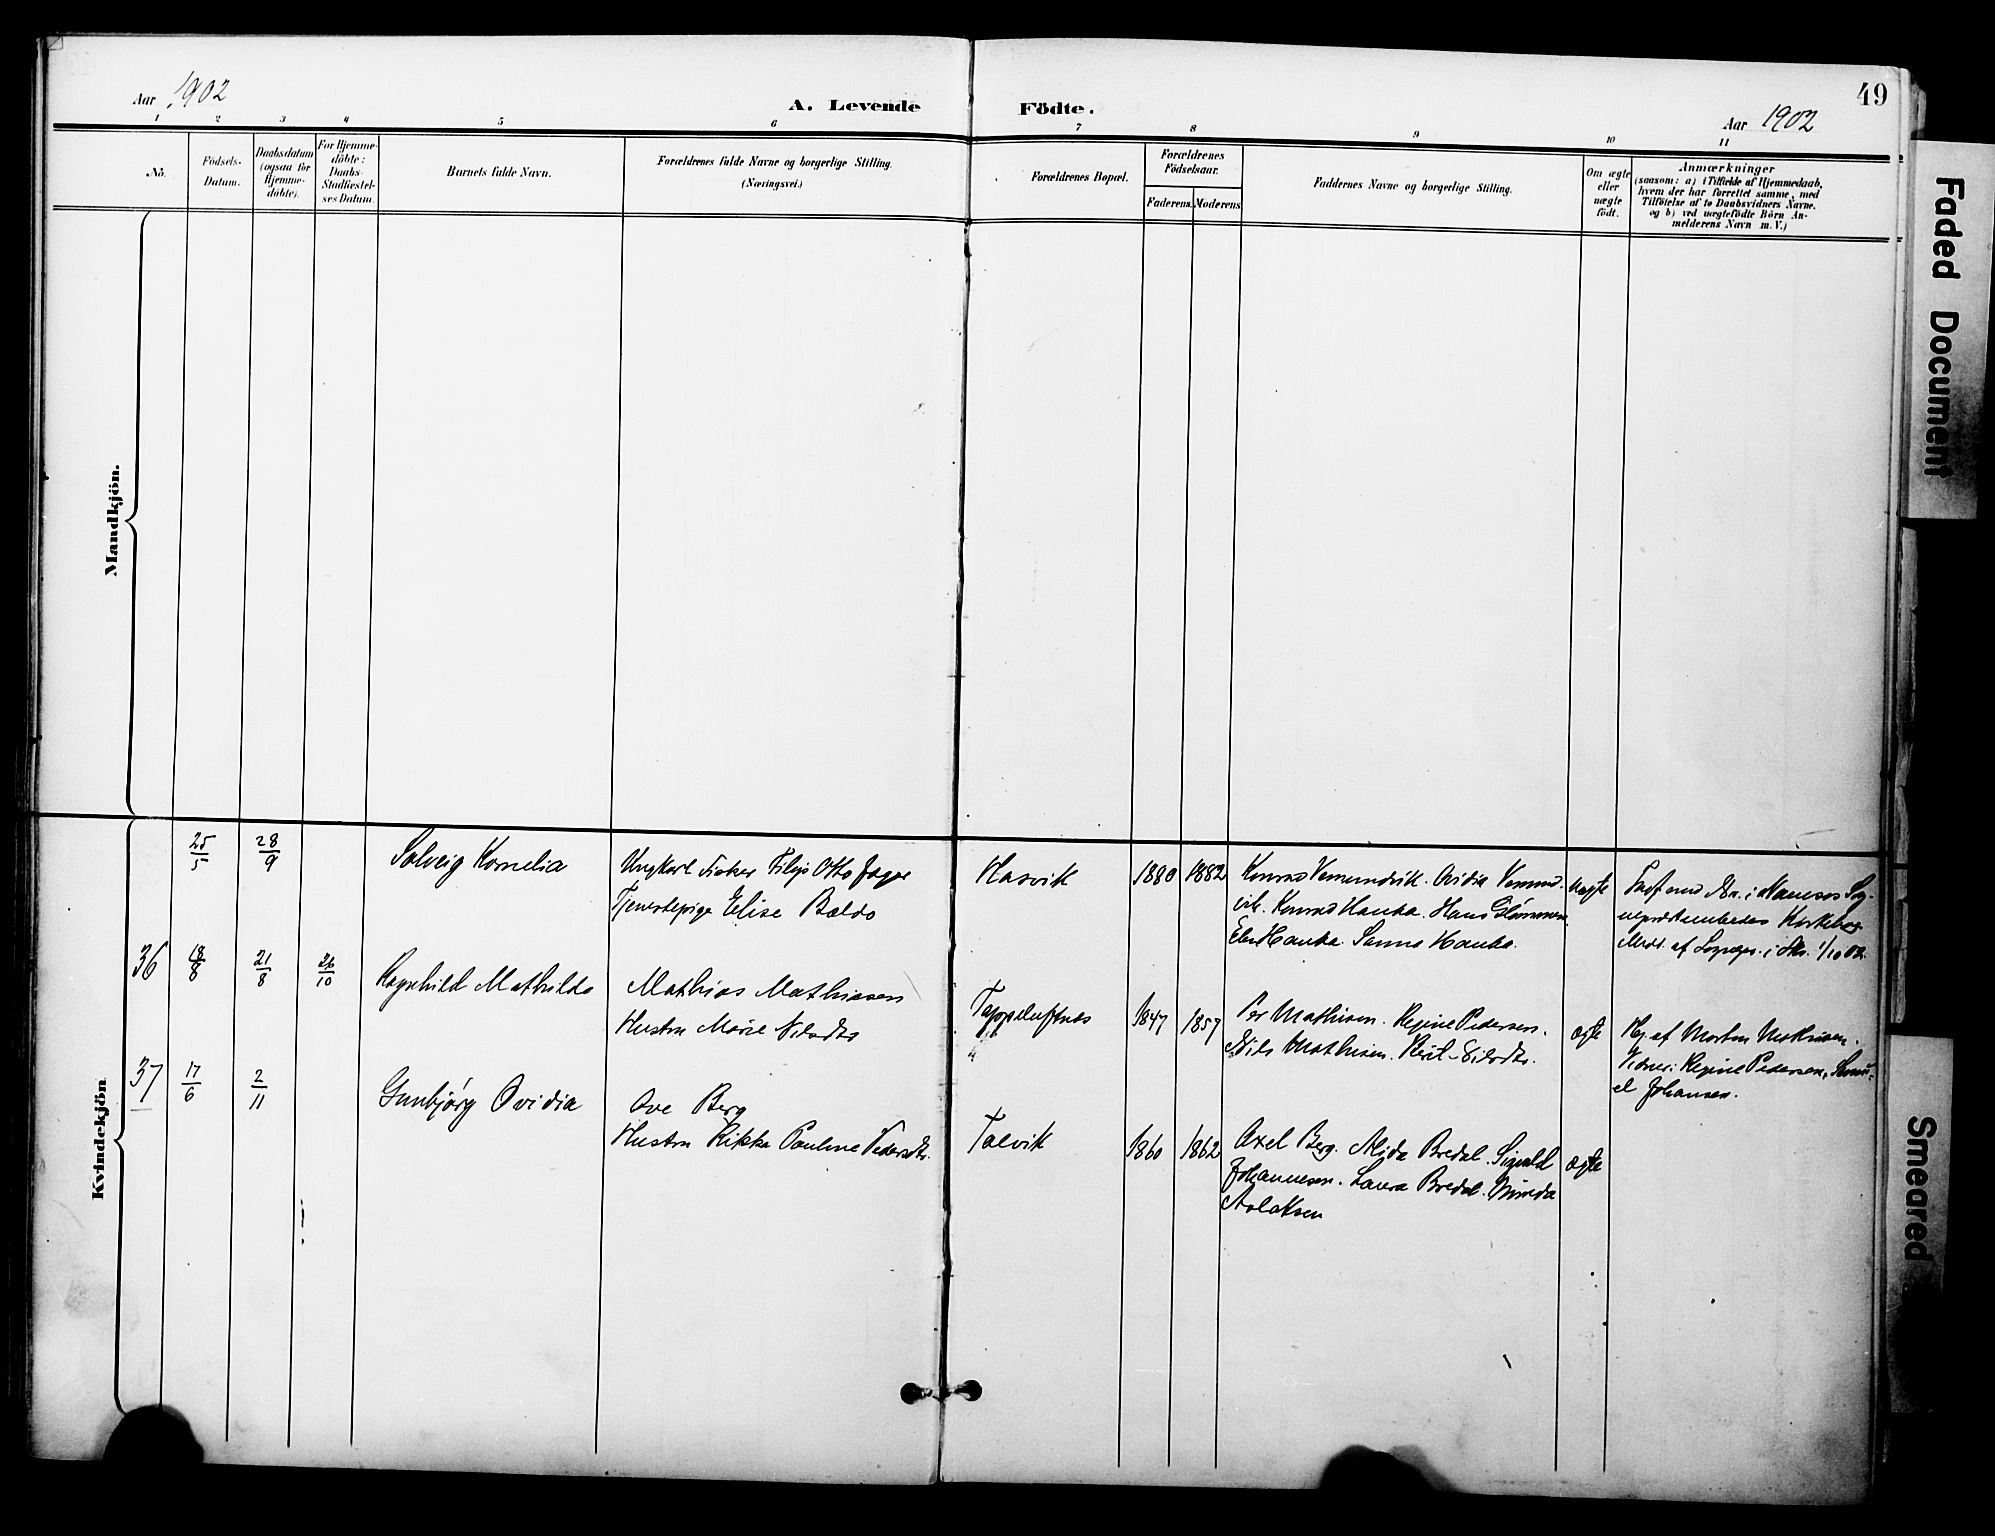 49
Aar 1902
A. Levende Födte.
Aar 1902
1 2 3 4 5 6 7 8 9 10 11
No.
Födsels-
Datum.
Daabsdatum
(ogsaa for
Hjemme-
döbte).
For Hjemme-
döbte:
Daabs-
Stadfæstel-
ses Datum.
Barnets fulde Navn.
Forældrenes fulde Navne og borgerlige Stilling.
(Næringsvei.)
Forældrenes Bopæl.
Forældrenes
Födselsaar.
Faderens. Moderens.
Faddernes Navne og borgerlige Stilling.
Om ægte
eller
uægte
födt.
Anmærkninger
(saasom: a) i Tilfælde af Hjemmedaab,
hvem der har forrettet samme, med
Tilföielse af to Daabsvidners Navne.
og b) ved uægtefödte Börn An-
melderens Navn m. V.)
Mandkjön.
Kvindekjön
25/5 28/9 Solveig Kornelia
Ungkarl Fisker Filip Otto Jager
Tjenestepige Elise Baldo
Hasvik 1880 1882
Konrad Vemundvik. Ovidia Vemund-
vik. Konrad Hauka. Hans Glömmen
Hauka. Sanna Hauka.
uægte
36 18/8 21/8 26/10 Ragnhild Mathilde
Mathias Mathiasen
Hustru Marie Nilsdtr
Tappeluftnes 1847 1857
Per Mathisen. Regine Pedersen.
Nils Mathisen. Berit Nilsdtr.
ægte
Hj. af Morten Mathisen.
Vidner: Regine Pedersen, Samu-
el Johansen.
37 17/6 2/11 Gunbjørg Ovidia
Ove Berg
Hustru Rikka Pauline Pedersdtr.
Talvik 1860 1862
Axel Berg. Alida Bredal. Sigvald
Johannesen. Laura Bredal.
Aslaksen
ægte
Faded Document
Smeared